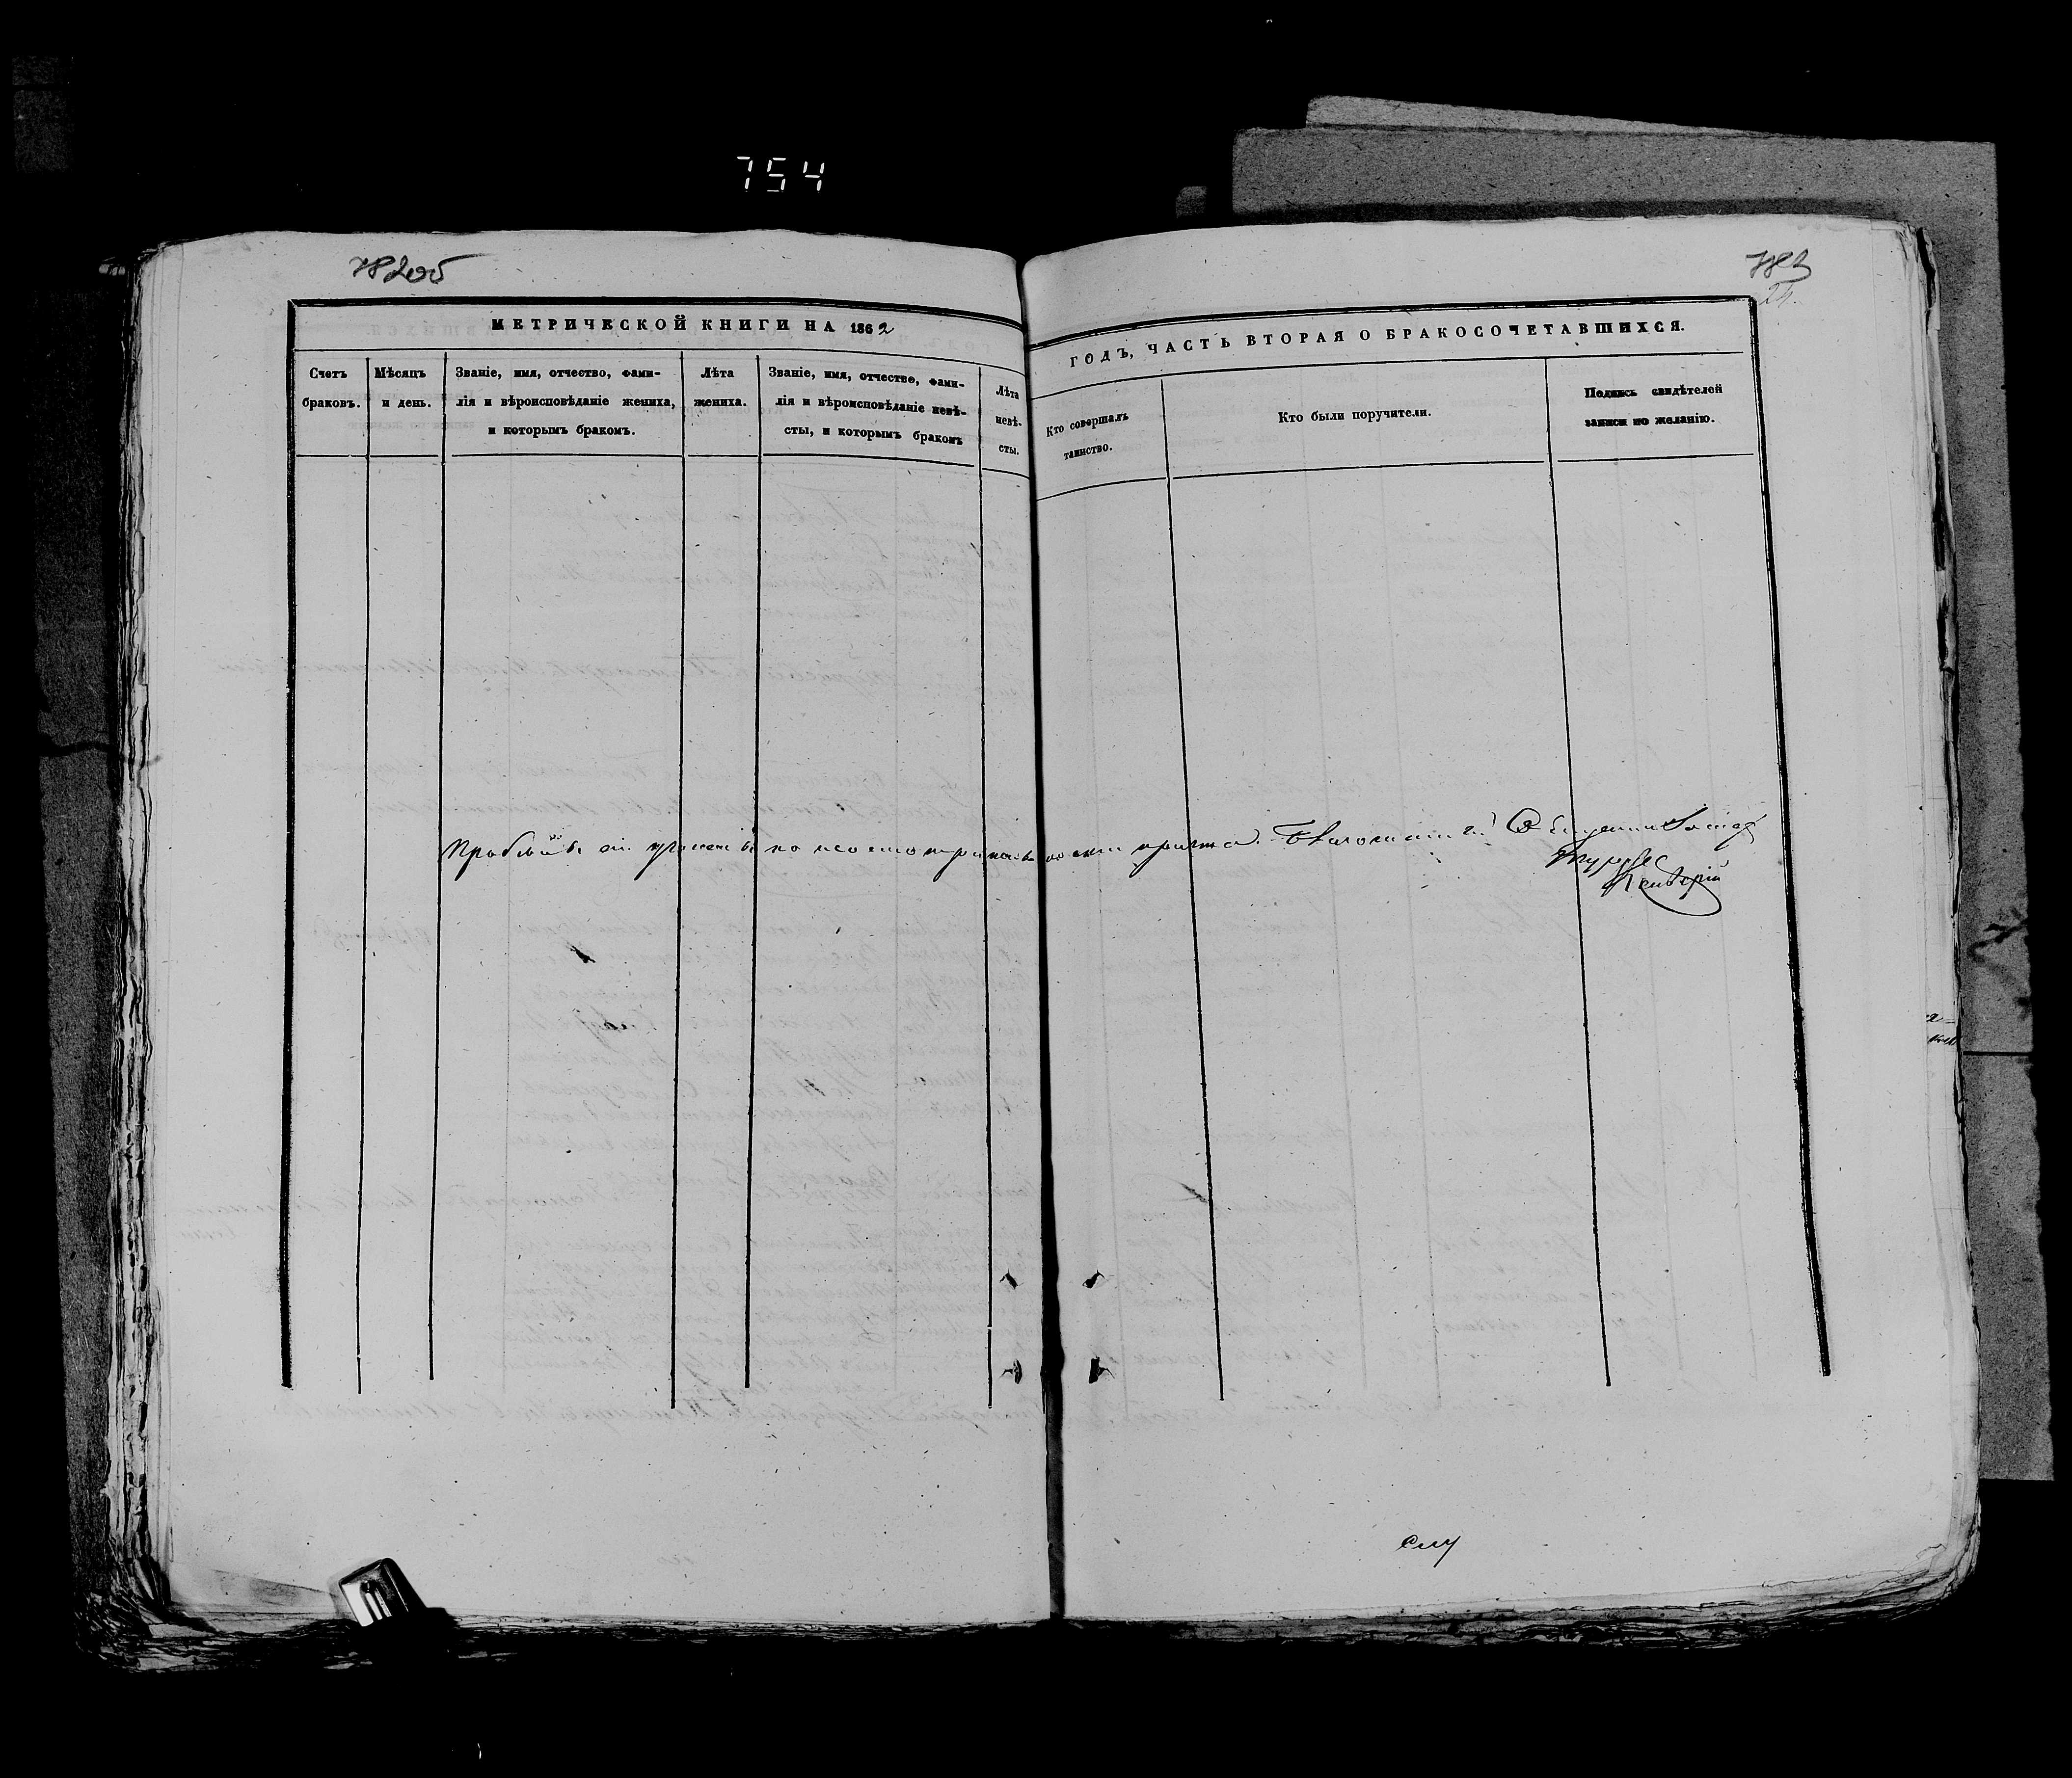 754
782об
783
24.
МЕТРИЧЕСКОЙ КНИГИ НА 1862
ГОДЪ, ЧАСТЬ ВТОРАЯ О БРАКОСОЧЕТАВШИХСЯ.
Счетъ
браковъ.
Мѣсяцъ
и день.
Званіе, имя, отчество, фами-
лія и вѣроисповѣданіе жениха,
и которымъ бракомъ.
Лѣта
жениха.
Званіе, имя, отчество, фами-
лія и вѣроисповѣданіе невѣ-
сты, и которымъ бракомъ
Лѣта
невѣ-
сты.
Кто совершалъ
таинство.
Кто были поручители.
Подпись свидѣтелей
записи по желанію.
Пробѣлъ сей учиненъ по неосмотрительности причта. Благочинный Священникъ